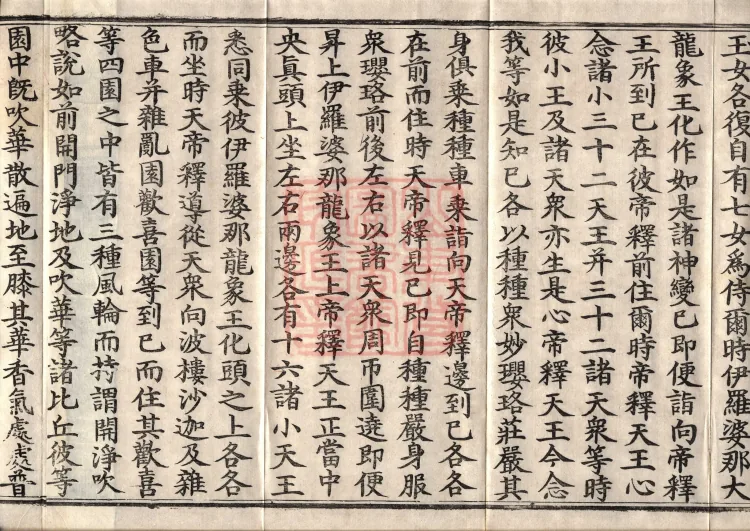 王女各復自有七女爲侍爾時伊羅婆那大
龍象王化作如是諸神變已即便詣向帝釋
王所到已在彼帝釋前住爾時帝釋天王心
念諸小三十二天王并三十二諸天衆等時
彼小王及諸天衆亦生是心帝釋天王今念
我等如是知已各以種種衆妙瓔珞莊嚴其
身俱乗種種車乗詣向天帝釋邊到已各各
在前而住時天帝釋見已即自種種嚴身服
衆瓔珞前後左右以諸天衆周帀圍遶即便
昇上伊羅婆那龍象王上帝釋天王正當中
央真頭上坐左右兩邊各有十六諸小天王
悉同乗彼伊羅婆那龍象王化頭之上各各
而坐時天帝釋導從天衆向波樓沙迦及雜
色車并雜亂園歡喜園等到已而住其歡喜
等四園之中皆有三種風輪而持謂開淨吹
略說如前開門淨地及吹華等諸比丘彼等
園中旣吹華散遍地至膝其華香氣處處普